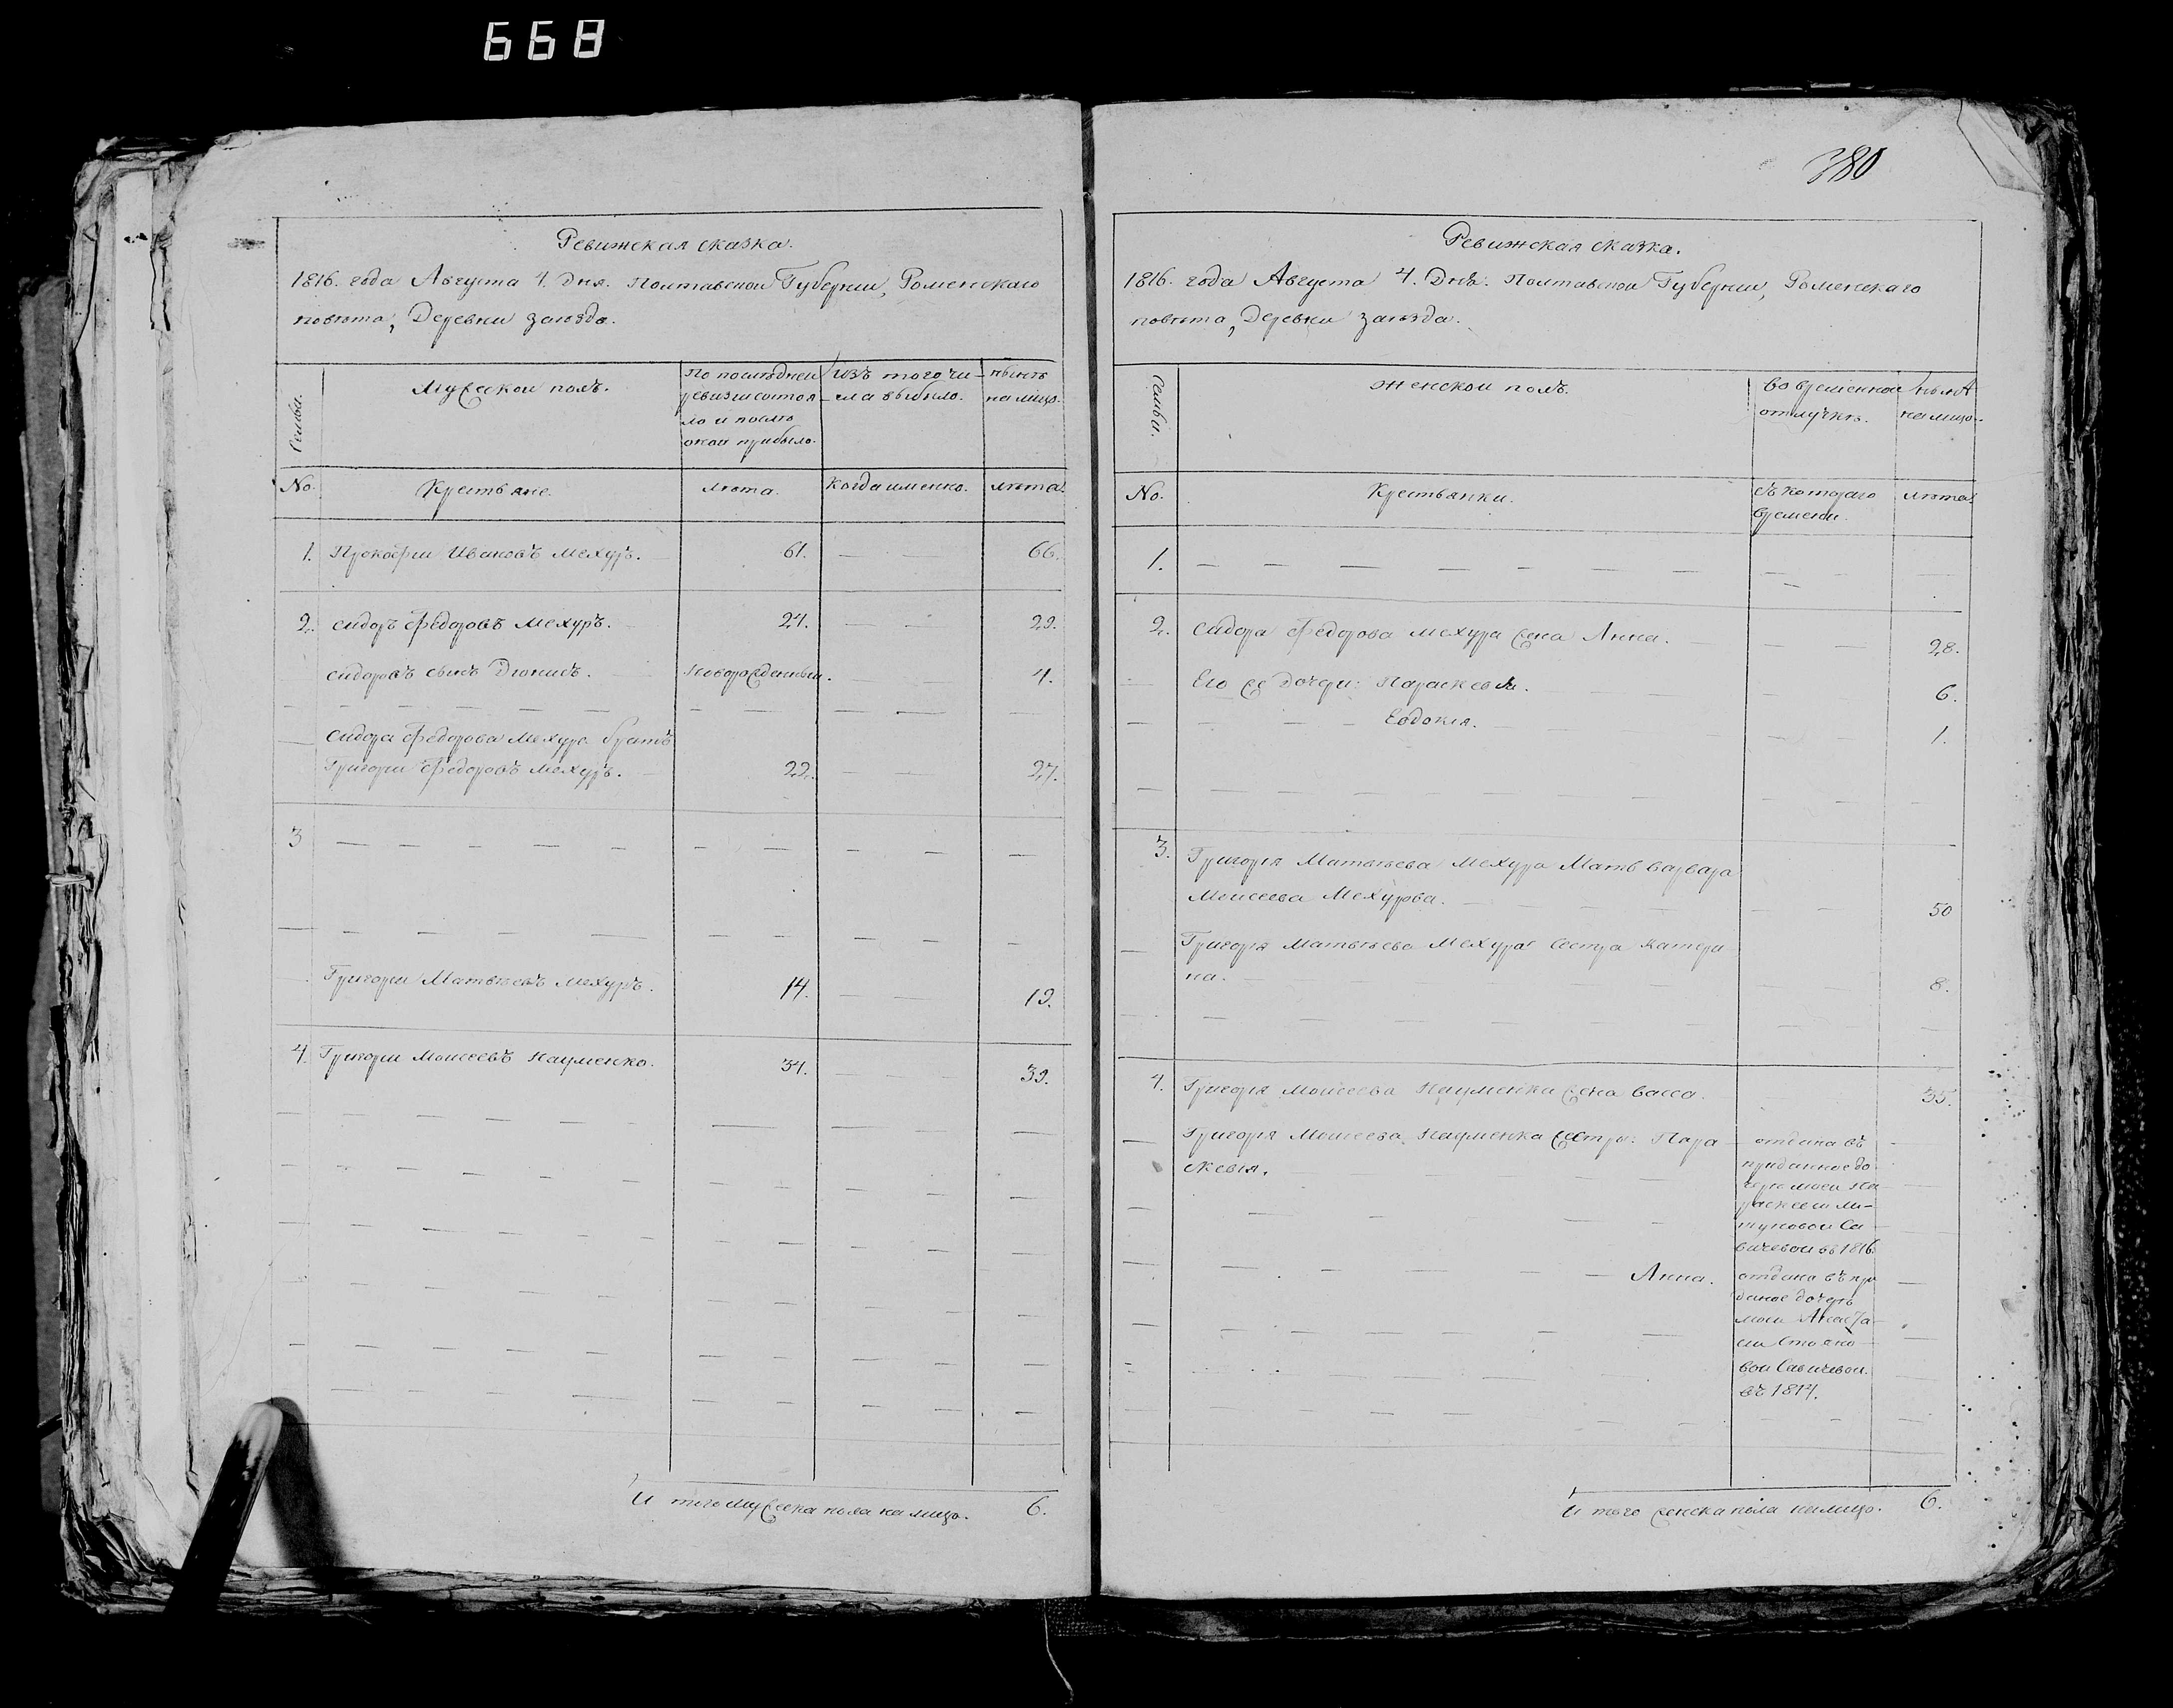 668
380
Ревижская сказка.
1816. года Августа 4. Дня. Полтавской Губернии, Роменскаго
повѣта, Деревни заѣзда.
Семьи.
Мужеской полъ.
По последней
ревизии состоя
ло и послѣ
оной прибыло.
Изъ того чи-
сла выбыло.
нынѣ
на лицо.
No.
Крестьяне.
лѣта.
Когда именно.
лѣта.
1. Прокофии Ивановъ Мехуръ. 61. 66.
2. Сидоръ Федоровъ Мехуръ. 24. 29.
Сидоровъ сынъ Дионисъ. Новорожденный. 4.
Сидора Федорова Мехура братъ
Григории Федоровъ Мехуръ. 22. 27.
3
Григории Матвѣевъ Мехуръ. 14. 19.
4. Григории Моисеевъ Науменко. 34. 39.
И того мужеска пола на лицо. 6.
Ревижская сказка.
1816. года Августа 4. Дня. Полтавской Губернии, Роменскаго
повѣта, Деревни заѣзда.
Семьи.
Женской полъ.
Во временной
отлучкѣ.
нынѣ
на лицо.
No.
Крестьянки.
Съ котораго
времени.
лѣта.
1.
2. Сидора Федорова Мехура жена Анна. 28.
Его же дочери: Параскевия. 6.
Евдокия. 1.
3. Григория Матвѣева Мехура Мать Варвара
Моисеева Мехурова. 50
Григория Матвѣева Мехура Сестра Катери
на. 8.
4. Григория Моисеева Науменка жена Васса. 35.
Григория Моисеева Науменка сестра: Пара
скевия.
отдана въ
приданное до
чери моей Па
раскеви
Савичевой въ 1816
Анна.
отдана въ при
даное дочери
моей Анаста
сии Стояно
вой Савичевой.
въ 1814.
И того женска пола налицо. 6.